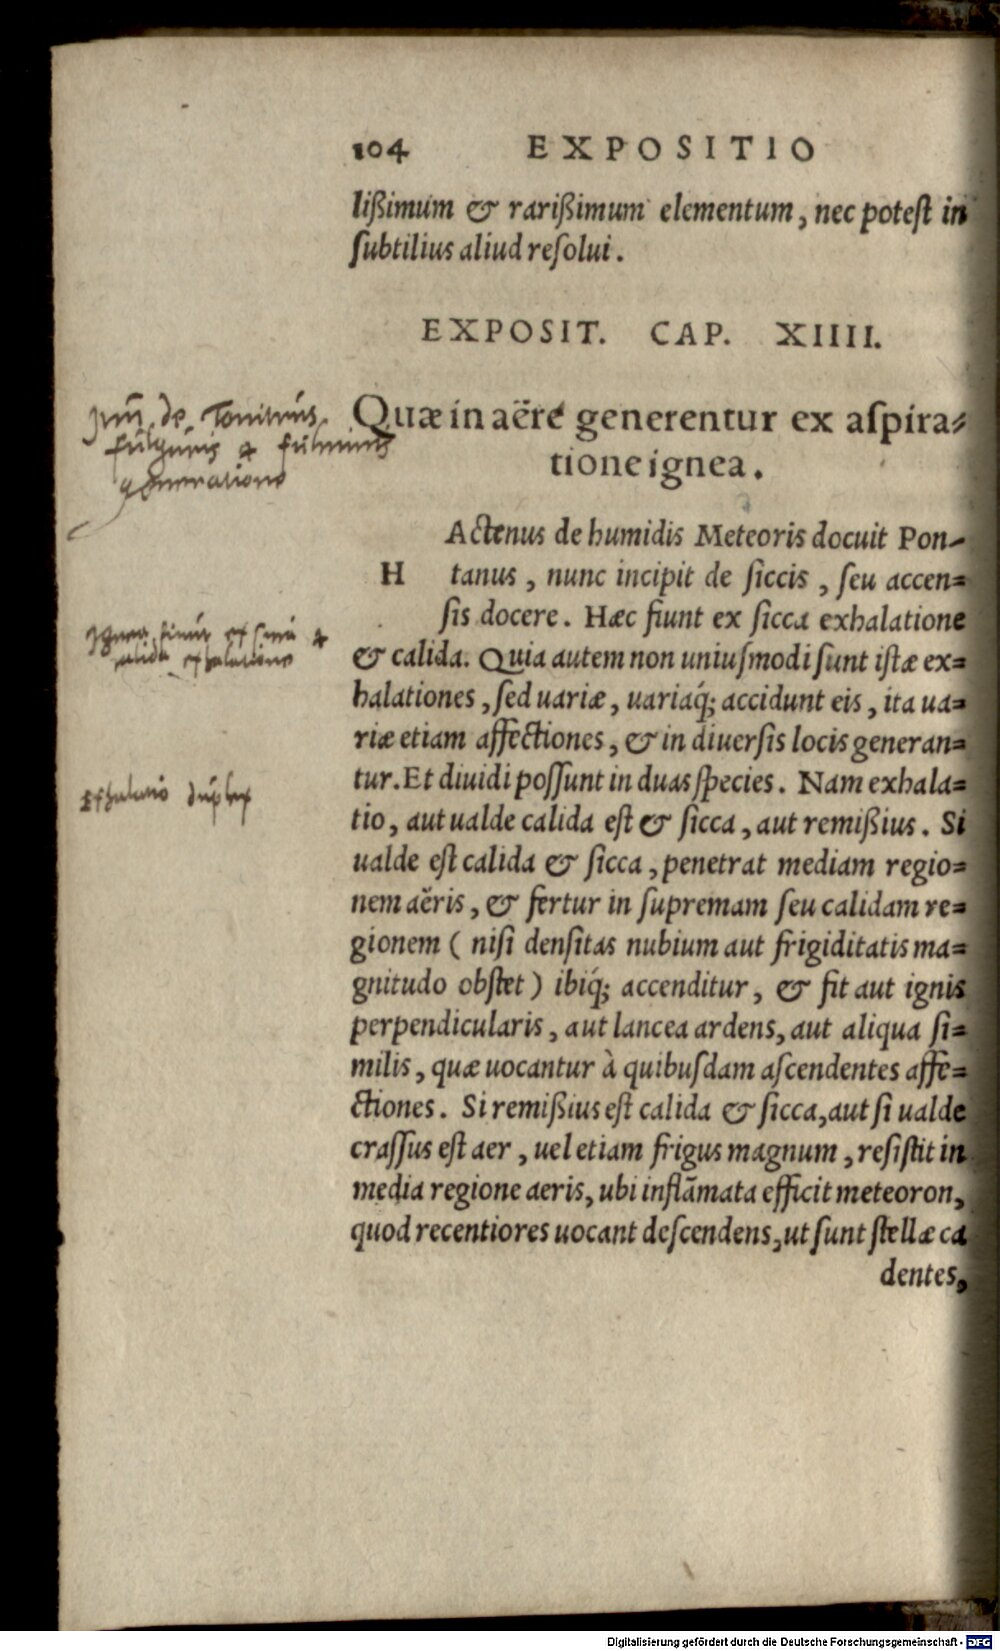 104 EXPOSITIO
lißimum & rarißimum elementum, nec poteſt in
ſubtilius aliud reſolui.
EXPOSIT. CAP. XIIII.
Quæ in aëre generentur ex aſpira⸗
tione ignea.
Actenus de humidis Meteoris docuit Pon-
H tanus, nunc incipit de ſiccis, ſeu accen=
ſis docere. Hæc fiunt ex ſicca exhalatione
& calida. Quia autem non uniuſmodi ſunt iſtæ ex=
halationes, ſed uariæ, uariaq́; accidunt eis, ita ua=
riæ etiam affectiones, & in diuerſis locis generan=
tur. Et diuidi poſſunt in duas ſpecies. Nam exhala=
tio, aut ualde calida eſt & ſicca, aut remißius. Si
ualde eſt calida & ſicca, penetrat mediam regio=
nem aëris, & fertur in ſupremam ſeu calidam re=
gionem ( niſi denſitas nubium aut frigiditatis ma=
gnitudo obſtet ) ibiq́; accenditur, & fit aut ignis
perpendicularis, aut lancea ardens, aut aliqua ſi=
milis, quæ uocantur à quibuſdam aſcendentes affe=
ctiones. Si remißius eſt calida & ſicca, aut ſi ualde
craſſus eſt aer, uel etiam frigus magnum, reſiſtit in
media regione aeris, ubi inflãmata efficit meteoron,
quod recentiores uocant deſcendens, ut ſunt ſtellæ ca
dentes,
de Tonitruis
fulguris & fulminis
generatione
Ignea fiunt ex &
calida exhalatione
Exhalatio duplex
Digitalisierung gefördert durch die Deutsche Forschungsgemeinschaft - DFG